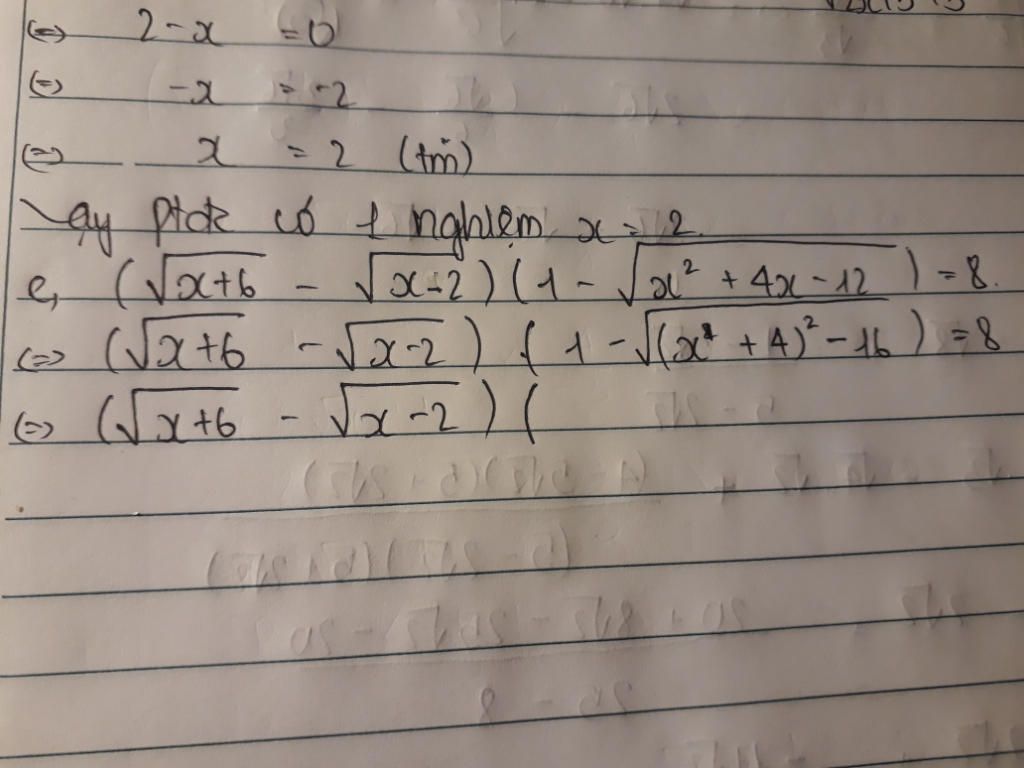 ⇔ 2 - x = 0
⇔ -x = -2
⇔ x = 2 (tm)
Vậy ptđk có 1 nghiệm x = 2.
e, (√(x+6) - √(x-2))(1 - √(x² + 4x - 12)) = 8.
⇔ (√(x+6) - √(x-2)) (1 - √((x² + 4)² - 16)) = 8
⇔ (√(x+6) - √(x-2)) (